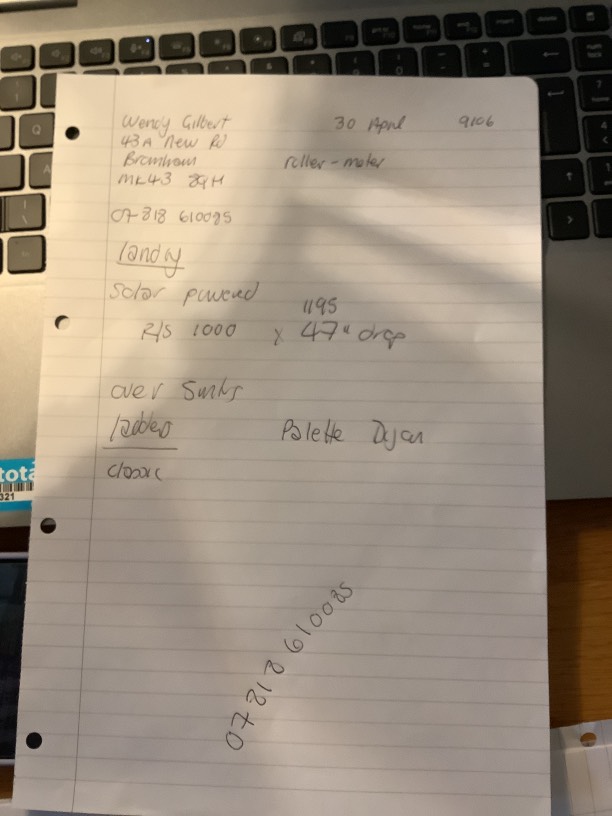 Wendy Gilbert 30 April 9106
43A New Rd
Bromham roller-motor
MK43 8QH
07818 610085
landing
Solar powered
1195
R/S 1000 x 47" drop
over 5mtrs
ladders Palette Dijon
classic
07818 610085
totá
321